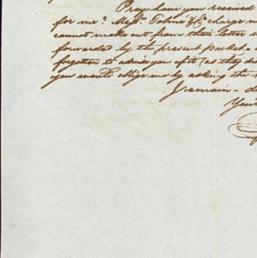 Pray have you received
for me? Messrs. Tobin & Co. charge m
cannot make out from their letter w
forwarded by the present packet.
forgotten to advise you of it (as they d
you would oblige me by asking the
I remain